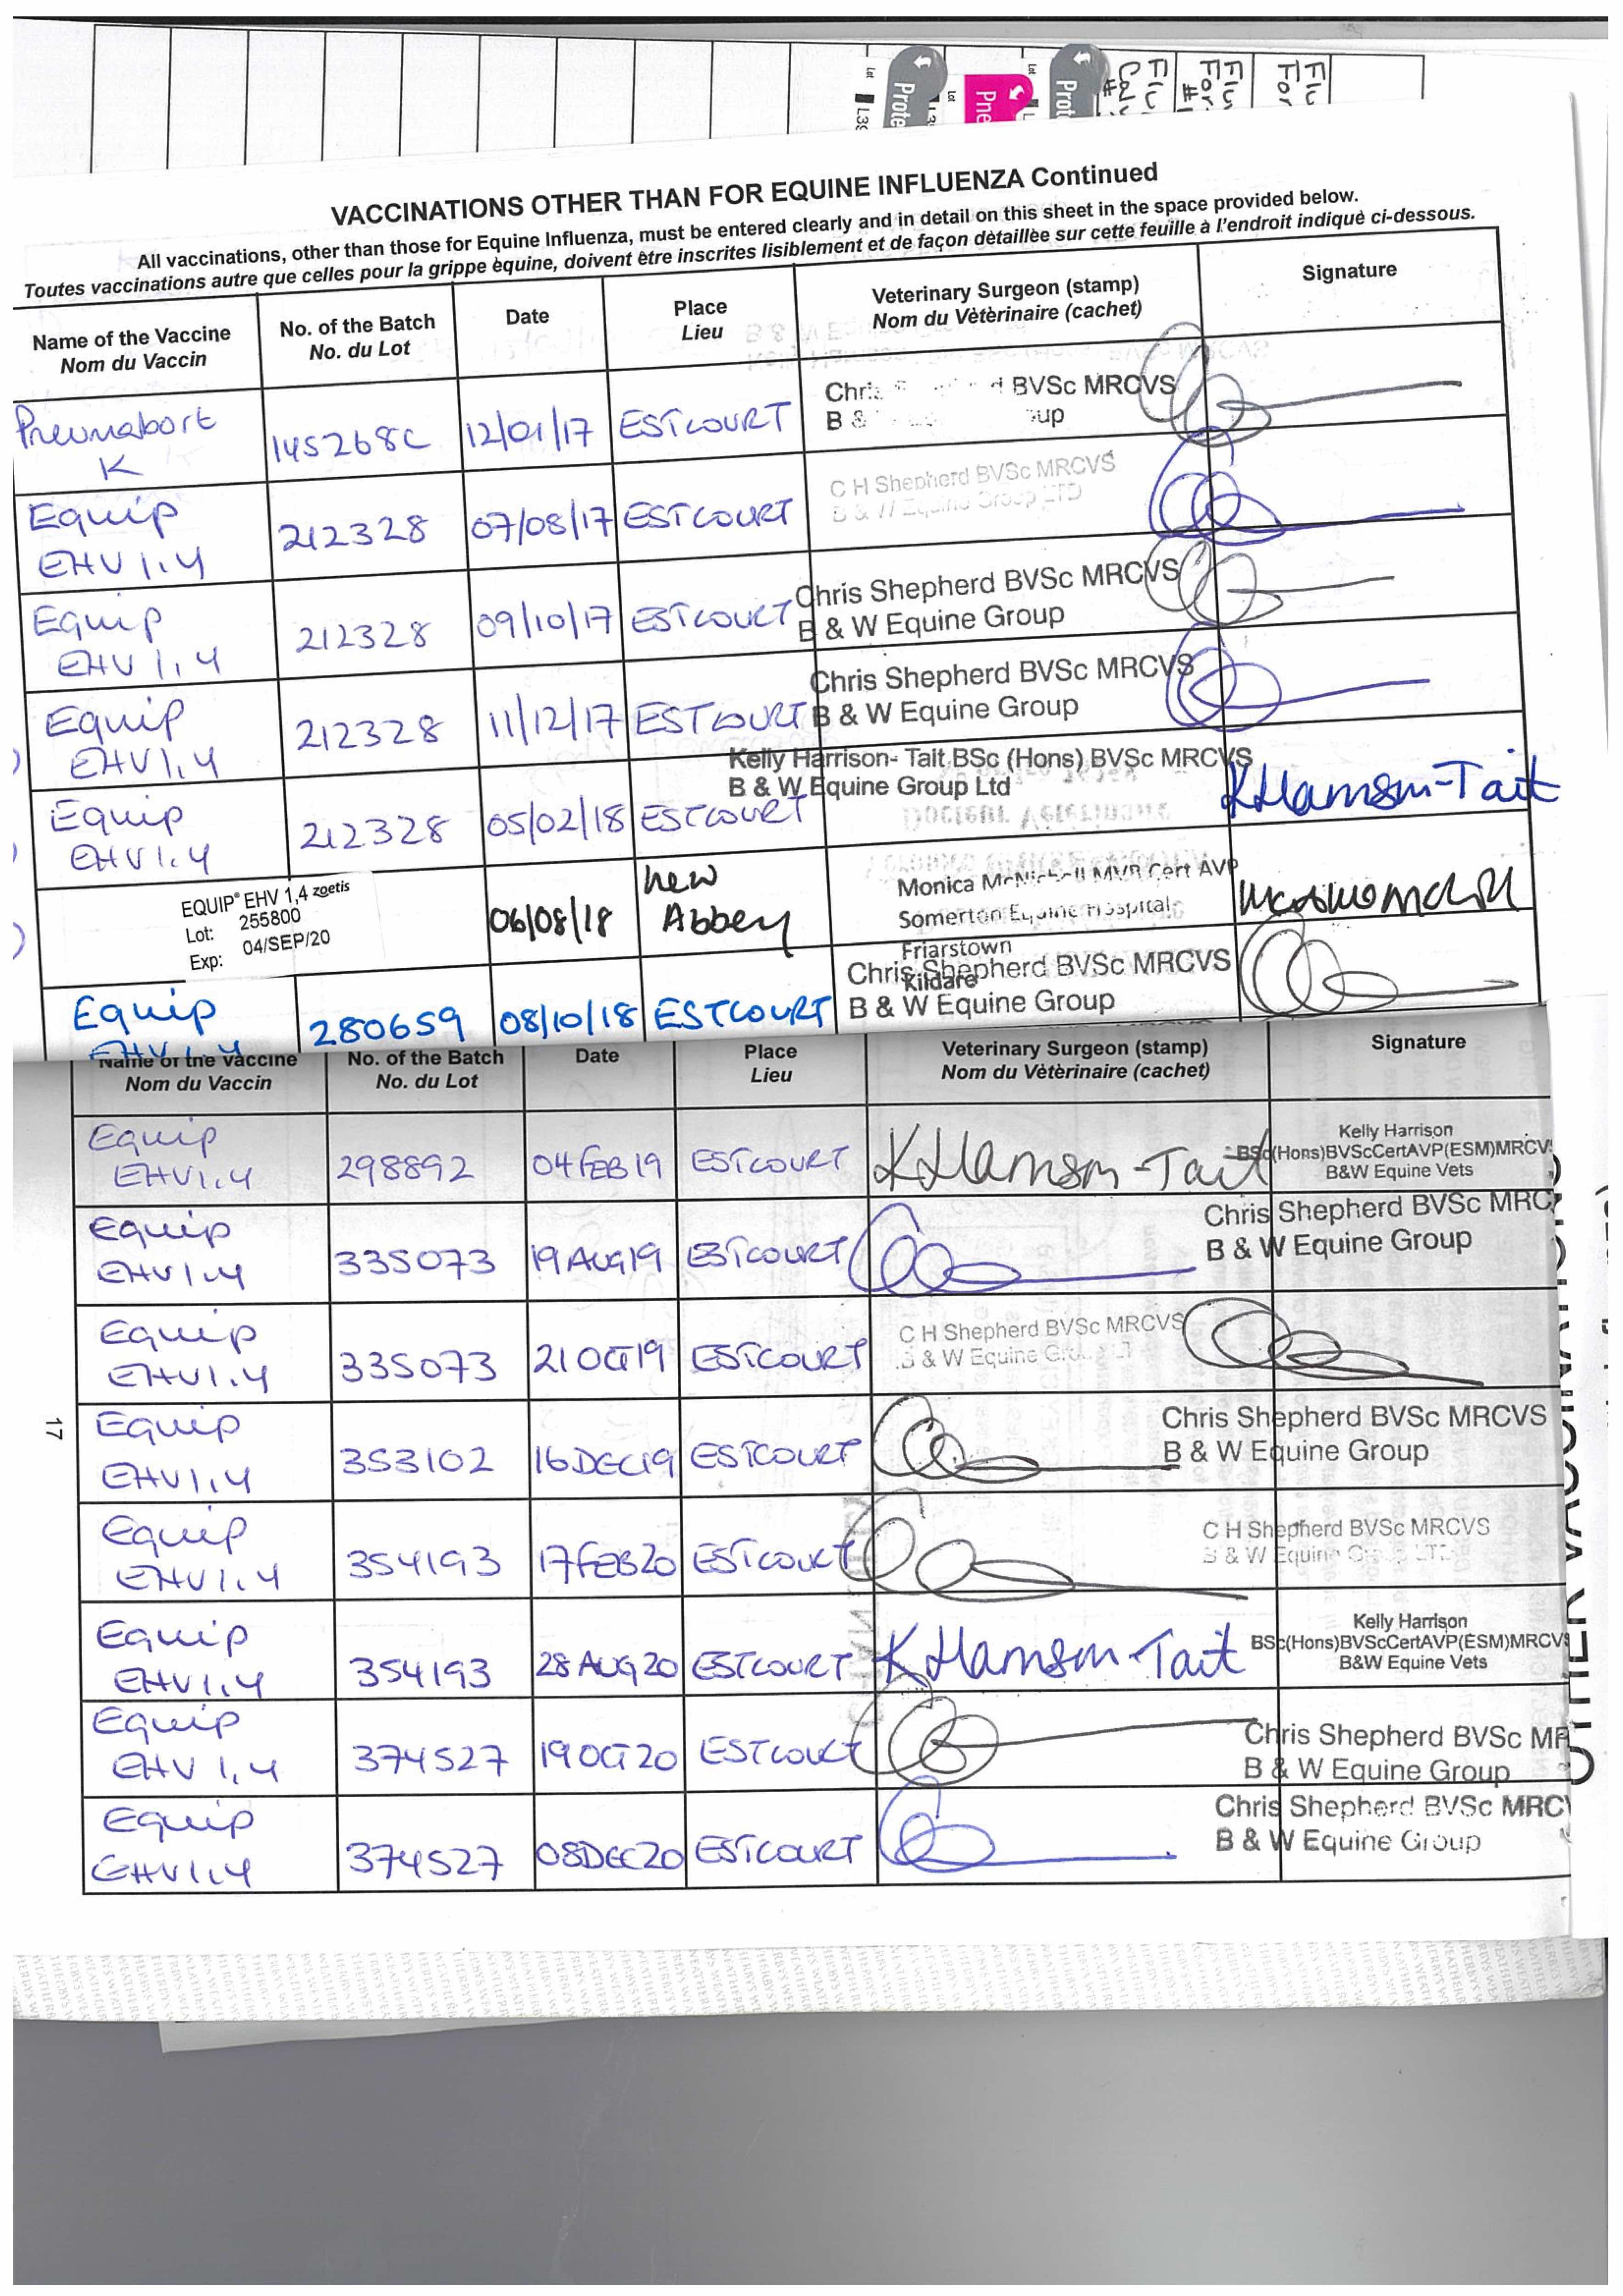 VACCINATIONS OTHER THAN FOR EQUINE INFLUENZA Continued
All vaccinations, other than those for Equine Influenza, must be entered clearly and in detail on this sheet in the space provided below.
Toutes vaccinations autre que celles pour la grippe èquine, doivent ètre inscrites lisiblement et de façon dètaillèe sur cette feuille à l'endroit indiquè ci-dessous.
Name of the Vaccine No. of the Batch Date Place Veterinary Surgeon (stamp) Signature
Nom du Vaccin No. du Lot Lieu Nom du Vètèrinaire (cachet)
Pneumabort K 145268C 12/01/17 ESTCOURT BVSc MRCVS
Equip EHV 1,4 212328 07/08/17 ESTCOURT C H Shepherd BVSc MRCVS
B & W Equine Group LTD
Equip EHV 1,4 212328 09/10/17 ESTCOURT Chris Shepherd BVSc MRCVS
B & W Equine Group
Equip EHV 1,4 212328 11/12/17 ESTCOURT Chris Shepherd BVSc MRCVS
B & W Equine Group
Equip EHV 1,4 212328 05/02/18 ESTCOURT Kelly Harrison- Tait BSc (Hons) BVSc MRCVS
B & W Equine Group Ltd
KHarrison-Tait
EQUIP® EHV 1,4 zoetis
Lot: 255800
Exp: 04/SEP/20
06/08/18 New Abbey Monica Cert AVP
Somerton Equine Hospital
Friarstown
Kildare
Equip EHV 1,4 280659 08/10/18 ESTCOURT Chris Shepherd BVSc MRCVS
B & W Equine Group
Name of the Vaccine No. of the Batch Date Place Veterinary Surgeon (stamp) Signature
Nom du Vaccin No. du Lot Lieu Nom du Vètèrinaire (cachet)
Equip EHV1,4 298892 04 FEB 19 ESTCOURT KHarrison-Tait Kelly Harrison
BSc(Hons)BVScCertAVP(ESM)MRCVS
B&W Equine Vets
Equip EHV1,4 335073 19 AUG 19 ESTCOURT Chris Shepherd BVSc MRC
B & W Equine Group
Equip EHV1,4 335073 21 OCT 19 ESTCOURT C H Shepherd BVSc MRCVS
B & W Equine
Equip EHV1,4 353102 16 DEC 19 ESTCOURT Chris Shepherd BVSc MRCVS
B & W Equine Group
Equip EHV1,4 354193 17 FEB 20 ESTCOURT C H Shepherd BVSc MRCVS
B & W Equine LTD
Equip EHV1,4 354193 28 AUG 20 ESTCOURT K Harrison-Tait Kelly Harrison
BSc(Hons)BVScCertAVP(ESM)MRCVS
B&W Equine Vets
Equip EHV 1,4 374527 19 OCT 20 ESTCOURT Chris Shepherd BVSc MR
B & W Equine Group
Equip EHV1,4 374527 08 DEC 20 ESTCOURT Chris Shepherd BVSc MRCV
B & W Equine Group
17